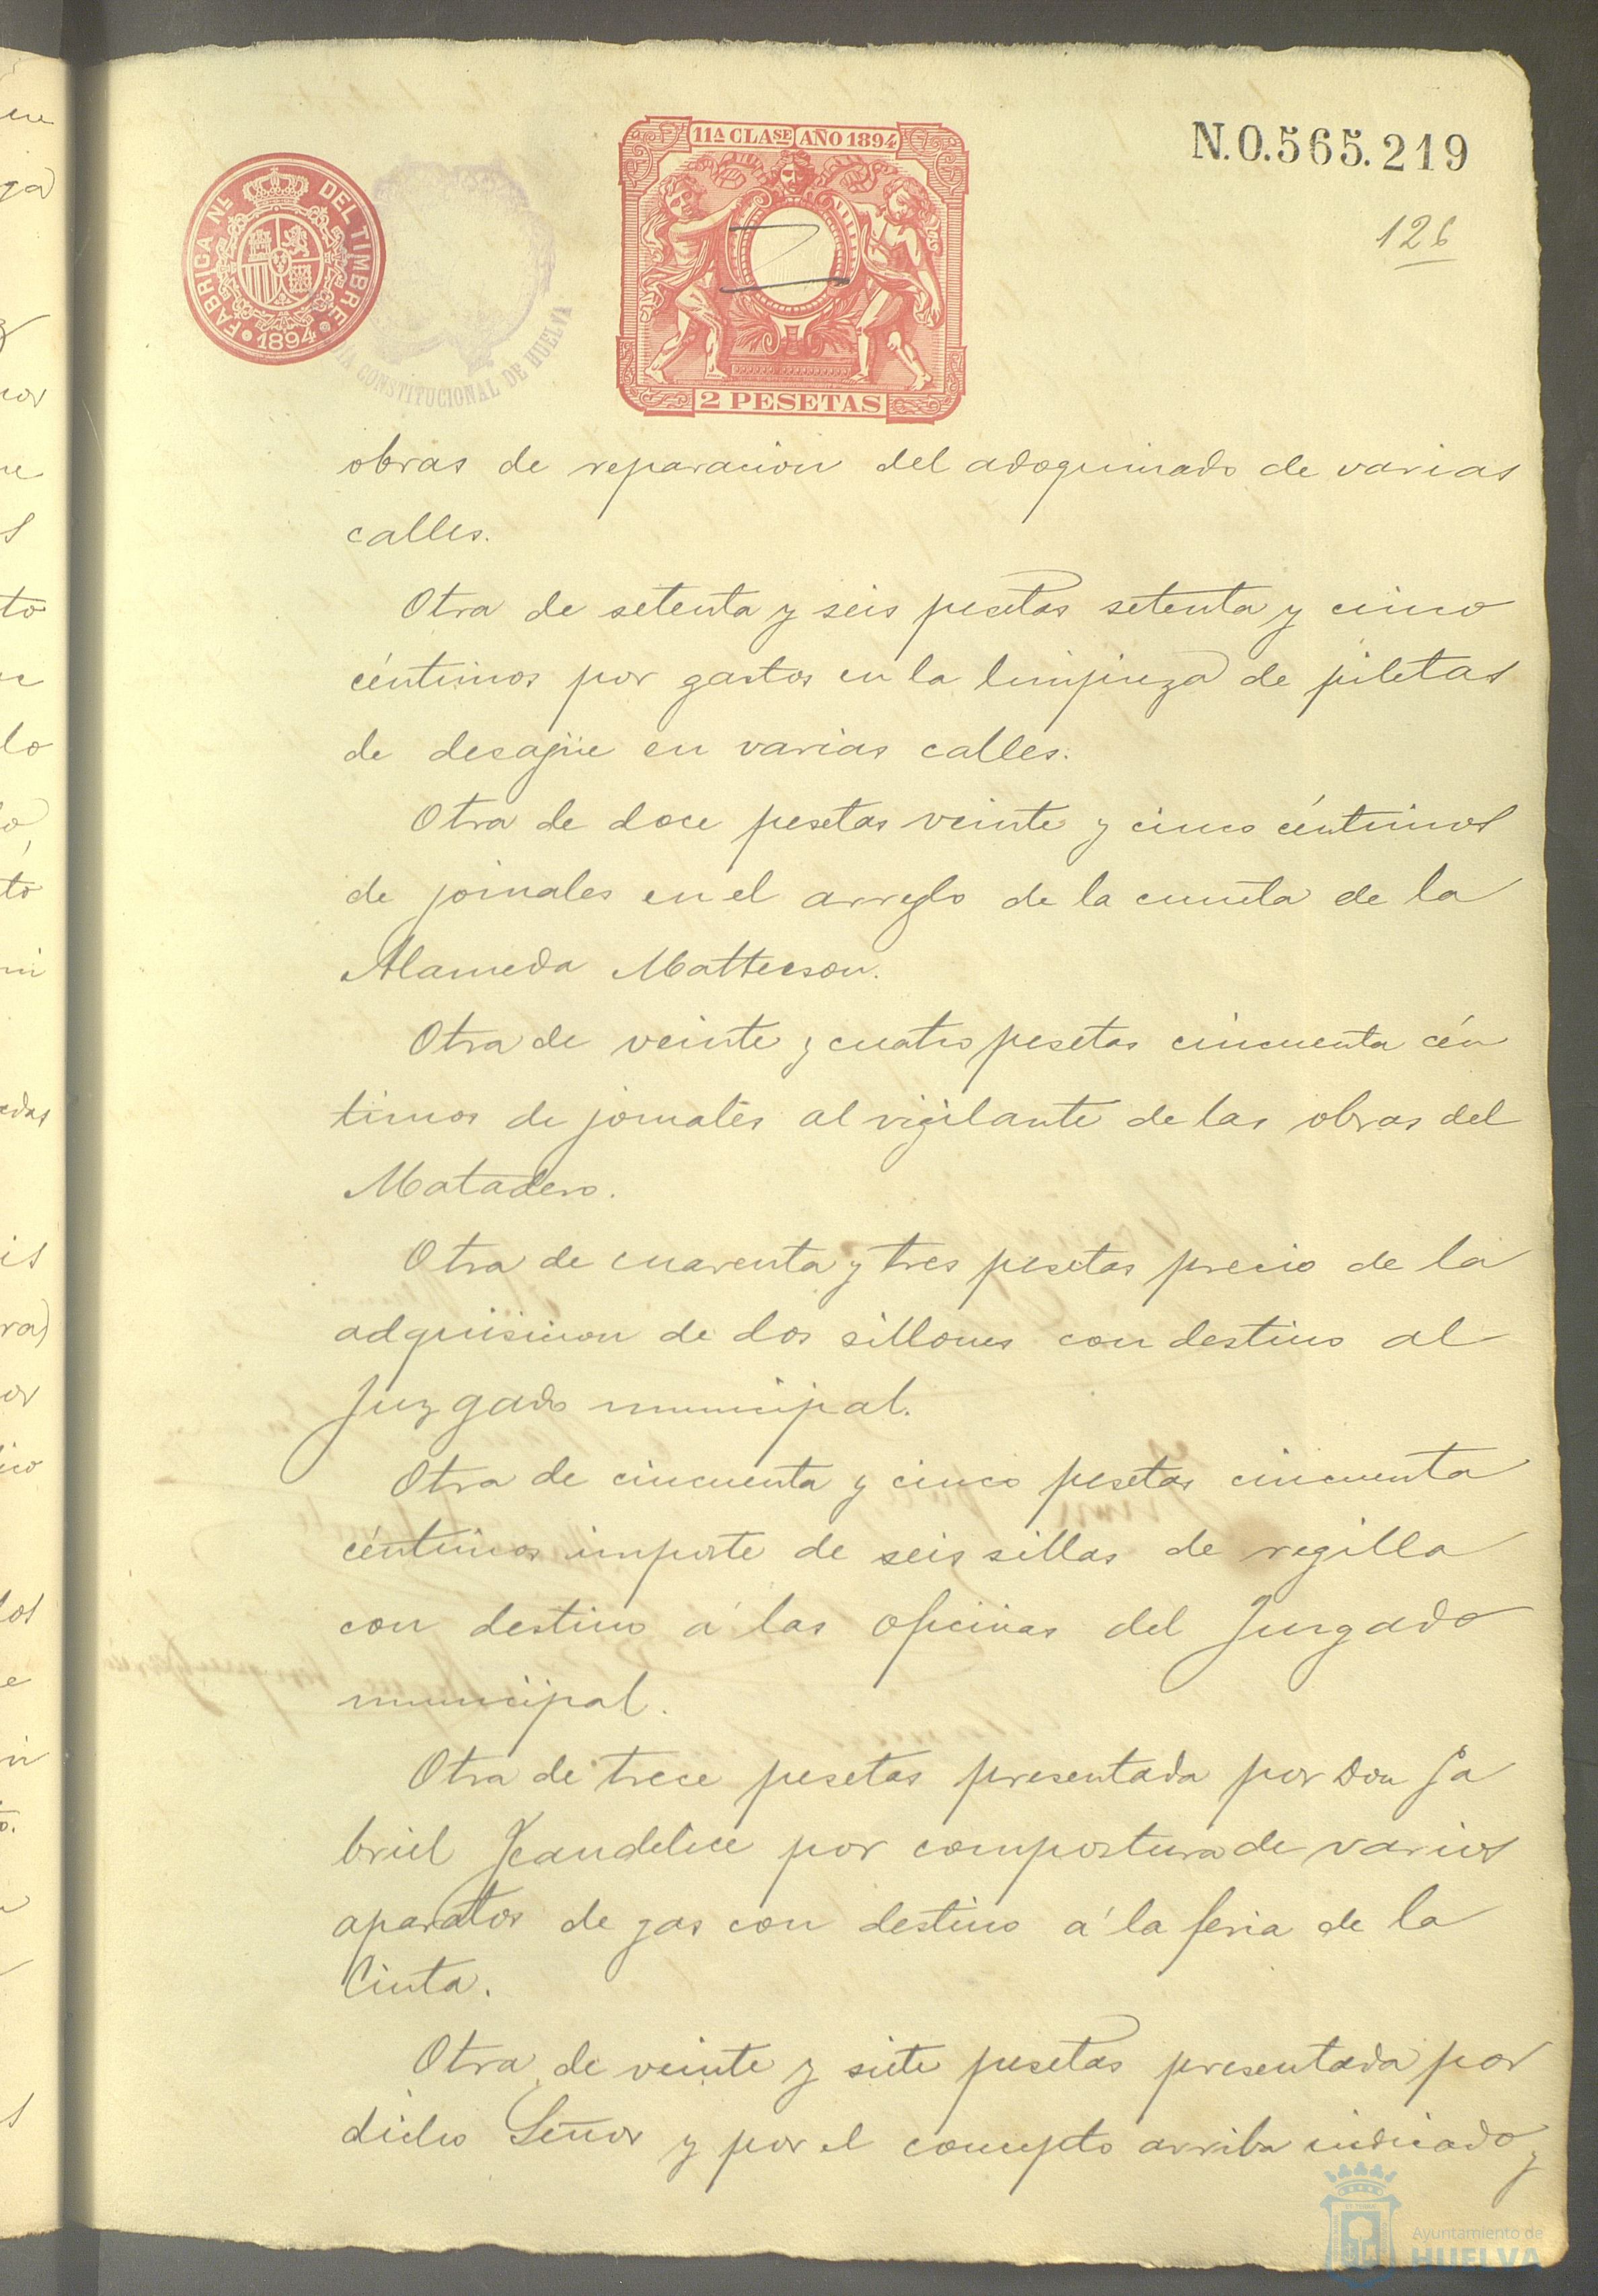 N.0.565.219
126
11ª CLASE AÑO 1894
2 PESETAS
FABRICA NL. DEL TIMBRE
1894
CONSTITUCIONAL DE HUELVA
obras de reparacion del adoquinado de varias
calles.
Otra de setenta y seis pesetas setenta y cinco
céntimos por gastos en la limpieza de piletas
de desagüe en varias calles.
Otra de doce pesetas veinte y cinco céntimos
de jornales en el arreglo de la cuneta de la
Alameda Matteeson.
Otra de veinte y cuatro pesetas cincuenta cén
timos de jornales al vigilante de las obras del
Matadero.
Otra de cuarenta y tres pesetas precio de la
adquisicion de dos sillones con destino al
Juzgado municipal.
Otra de cincuenta y cinco pesetas cincuenta
céntimos importe de seis sillas de regilla
con destino á las oficinas del Juzgado
municipal.
Otra de trece pesetas presentada por Don Ga
briel por compostura de varios
aparatos de gas con destino á la feria de la
Cinta.
Otra de veinte y siete pesetas presentada por
dicho Señor y por el concepto arriba indicado y
Ayuntamiento de
HUELVA